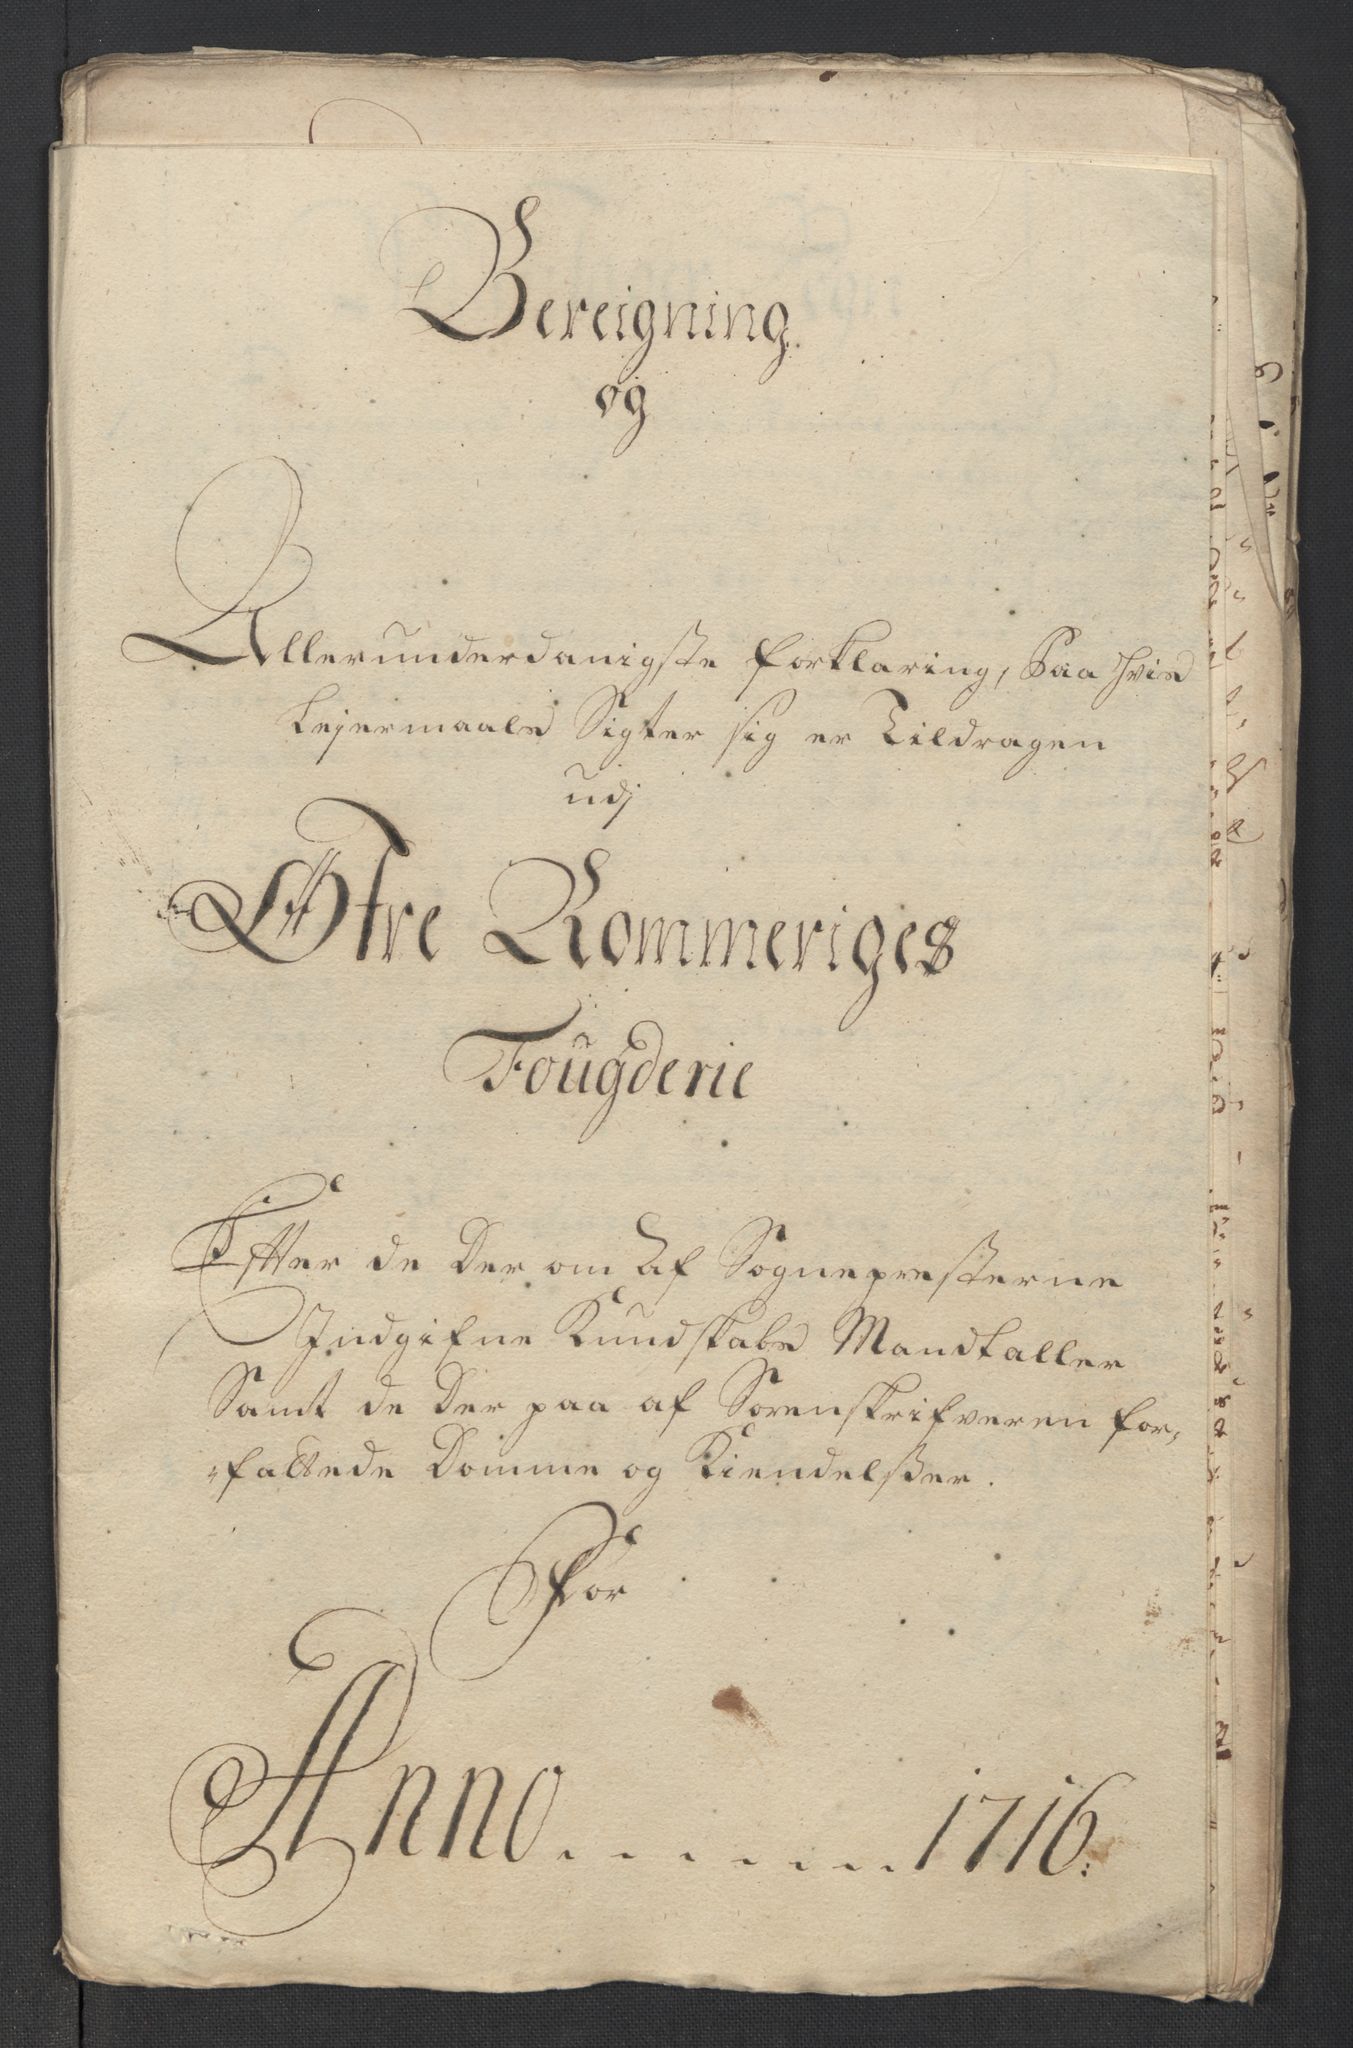 Bereigning
og
Allerunderdanigste forklaring, Paa hvis
Lejermaals Sigter sig er Tildragen
udj
Øfre Rommeriges
Fougderie
Efter de der om af Sognepresterne
Indgifne Kundskabs Mandtaller
Samt de der paa af Sorenskrifveren for,
fattede Domme og Kiendelsser.
For
Anno . . . . . . . 1716: